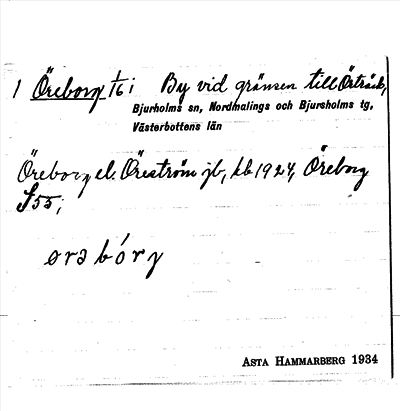 1 Öreborg 1/16 i By vid gränsen till Örträsk,
Bjurholms sn, Nordmalings och Bjursholms tg,
Västerbottens län
Öreborg el. Öreström jb, kb 1924, Öreborg
S55;
ørəbórj
ASTA HAMMARBERG 1934